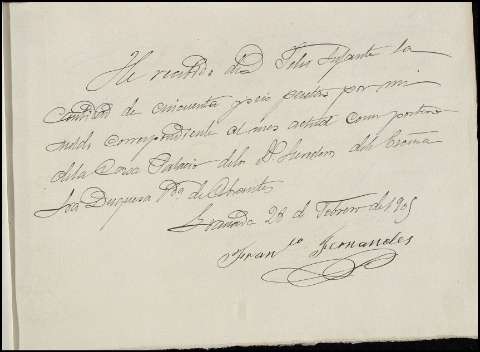 He recibido de D Felix Infante la
cantidad de cincuenta y seis pesetas por mi
sueldo correspondiente al mes actual como portero
de la Casa Palacio de los Sr
Sra Duquesa Vda de Abrantes
Granada 28 de Febrero de 1905
Franco Fernandes